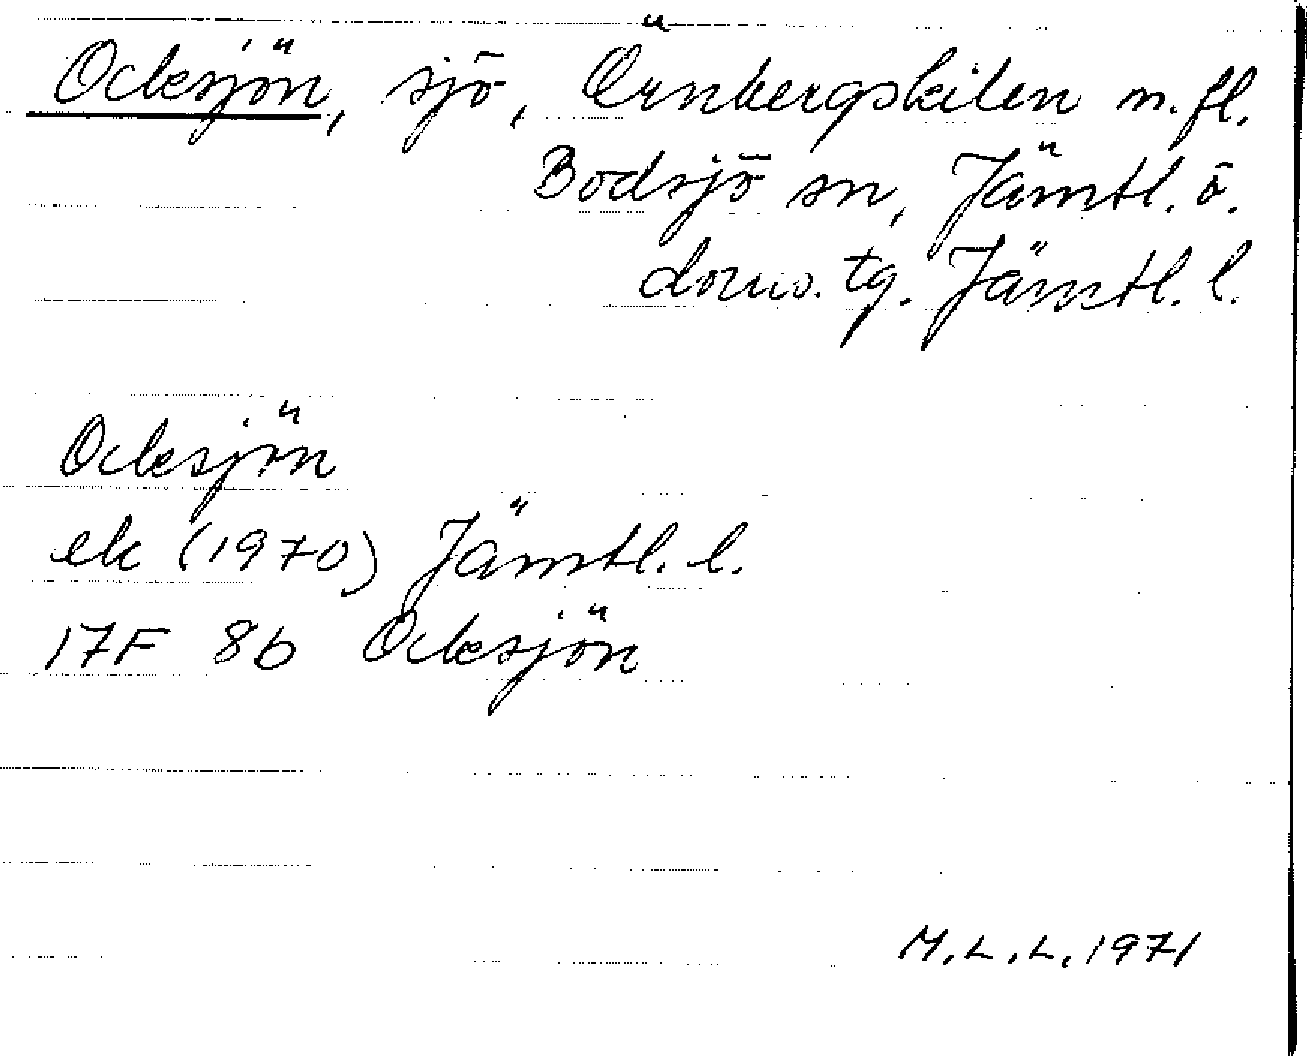 Ocksjön, sjö, Örnbergskilen m.fl.
Bodsjö sn, Jämtl. ö.
doms. tg. Jämtl. l.
Ocksjön
ek (1970) Jämtl. l.
17F 8b Ocksjön
M.L.L. 1971